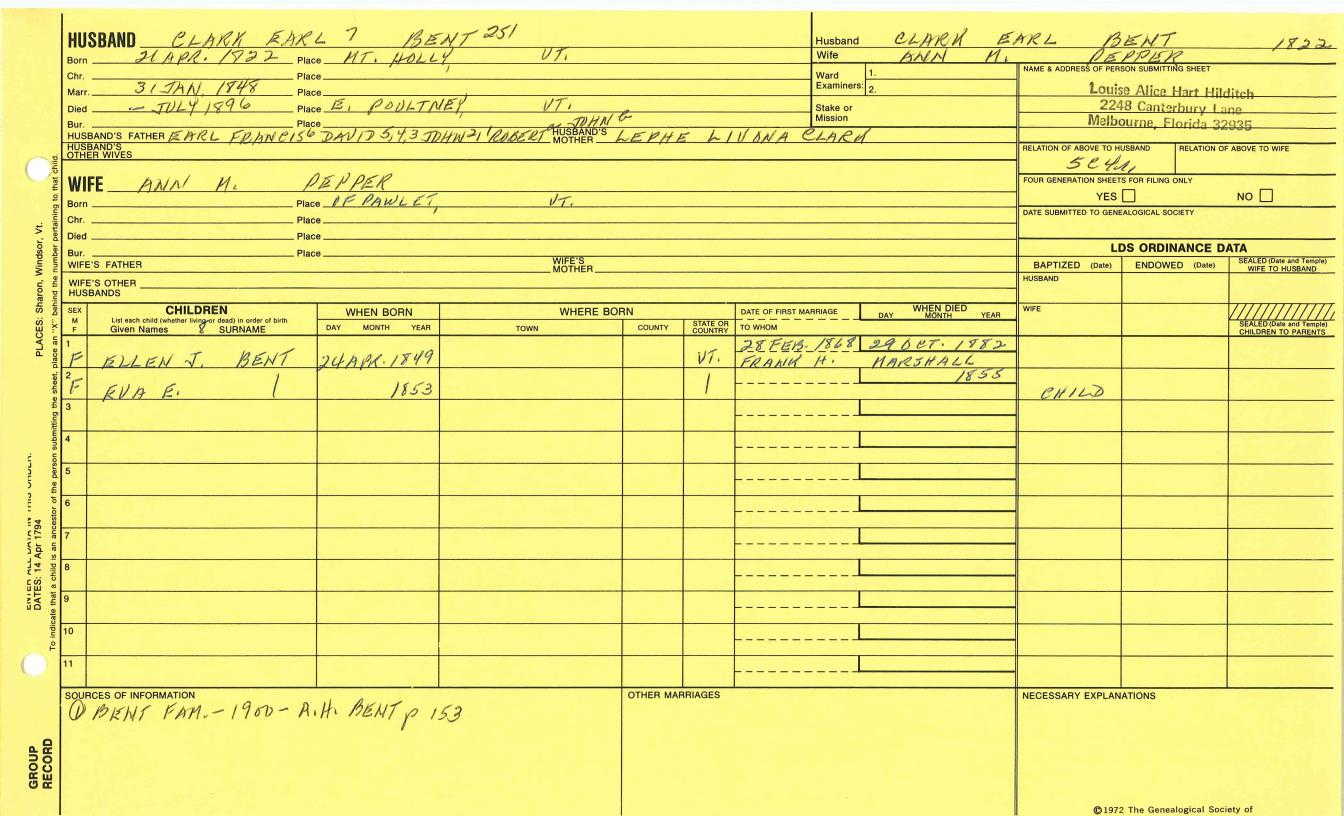 HUSBAND CLARK EARL 7 BENT 251
Born 21 APR. 1822 Place MT. HOLLY, VT.
Chr. Place
Marr. 31 JAN. 1848 Place
Died - JULY 1896 Place E. POULTNEY, VT.
Bur. Place
HUSBAND'S FATHER EARL FRANCIS 6 DAVID 5,4,3 JOHN 2 1 ROBERT a JOHN b HUSBAND'S MOTHER LEPHE LIVONA CLARK
HUSBAND'S OTHER WIVES
Husband CLARK EARL BENT 1822
Wife ANN M. PEPPER
Ward Examiners: 1.
2.
Stake or Mission
NAME & ADDRESS OF PERSON SUBMITTING SHEET
Louise Alice Hart Hilditch
2248 Canterbury Lane
Melbourne, Florida 32935
RELATION OF ABOVE TO HUSBAND RELATION OF ABOVE TO WIFE
5C4R
FOUR GENERATION SHEETS FOR FILING ONLY
YES NO
DATE SUBMITTED TO GENEALOGICAL SOCIETY
WIFE ANN M. PEPPER
Born Place OF PAWLET, VT.
Chr. Place
Died Place
Bur. Place
WIFE'S FATHER WIFE'S MOTHER
WIFE'S OTHER HUSBANDS
LDS ORDINANCE DATA
BAPTIZED (Date) ENDOWED (Date) SEALED (Date and Temple) WIFE TO HUSBAND
HUSBAND
WIFE
SEALED (Date and Temple) CHILDREN TO PARENTS
SEX M F
CHILDREN
List each child (whether living or dead) in order of birth
Given Names 8 SURNAME
WHEN BORN
DAY MONTH YEAR
WHERE BORN
TOWN COUNTY STATE OR COUNTRY
DATE OF FIRST MARRIAGE
TO WHOM
WHEN DIED
DAY MONTH YEAR
1 F ELLEN J. BENT 24 APR. 1849 VT. 28 FEB. 1868 29 OCT. 1882
FRANK H. MARSHALL
2 F EVA E. | 1853 | 1855 CHILD
3
4
5
6
7
8
9
10
11
SOURCES OF INFORMATION
① BENT FAM. - 1900 - A.H. BENT p 153
OTHER MARRIAGES
NECESSARY EXPLANATIONS
©1972 The Genealogical Society of
PLACES: Sharon, Windsor, Vt.
ENTER ALL DATA IN THIS ORDER:
DATES: 14 Apr 1794
To indicate that a child is an ancestor of the person submitting the sheet, place an "X" behind the number pertaining to that child.
GROUP RECORD